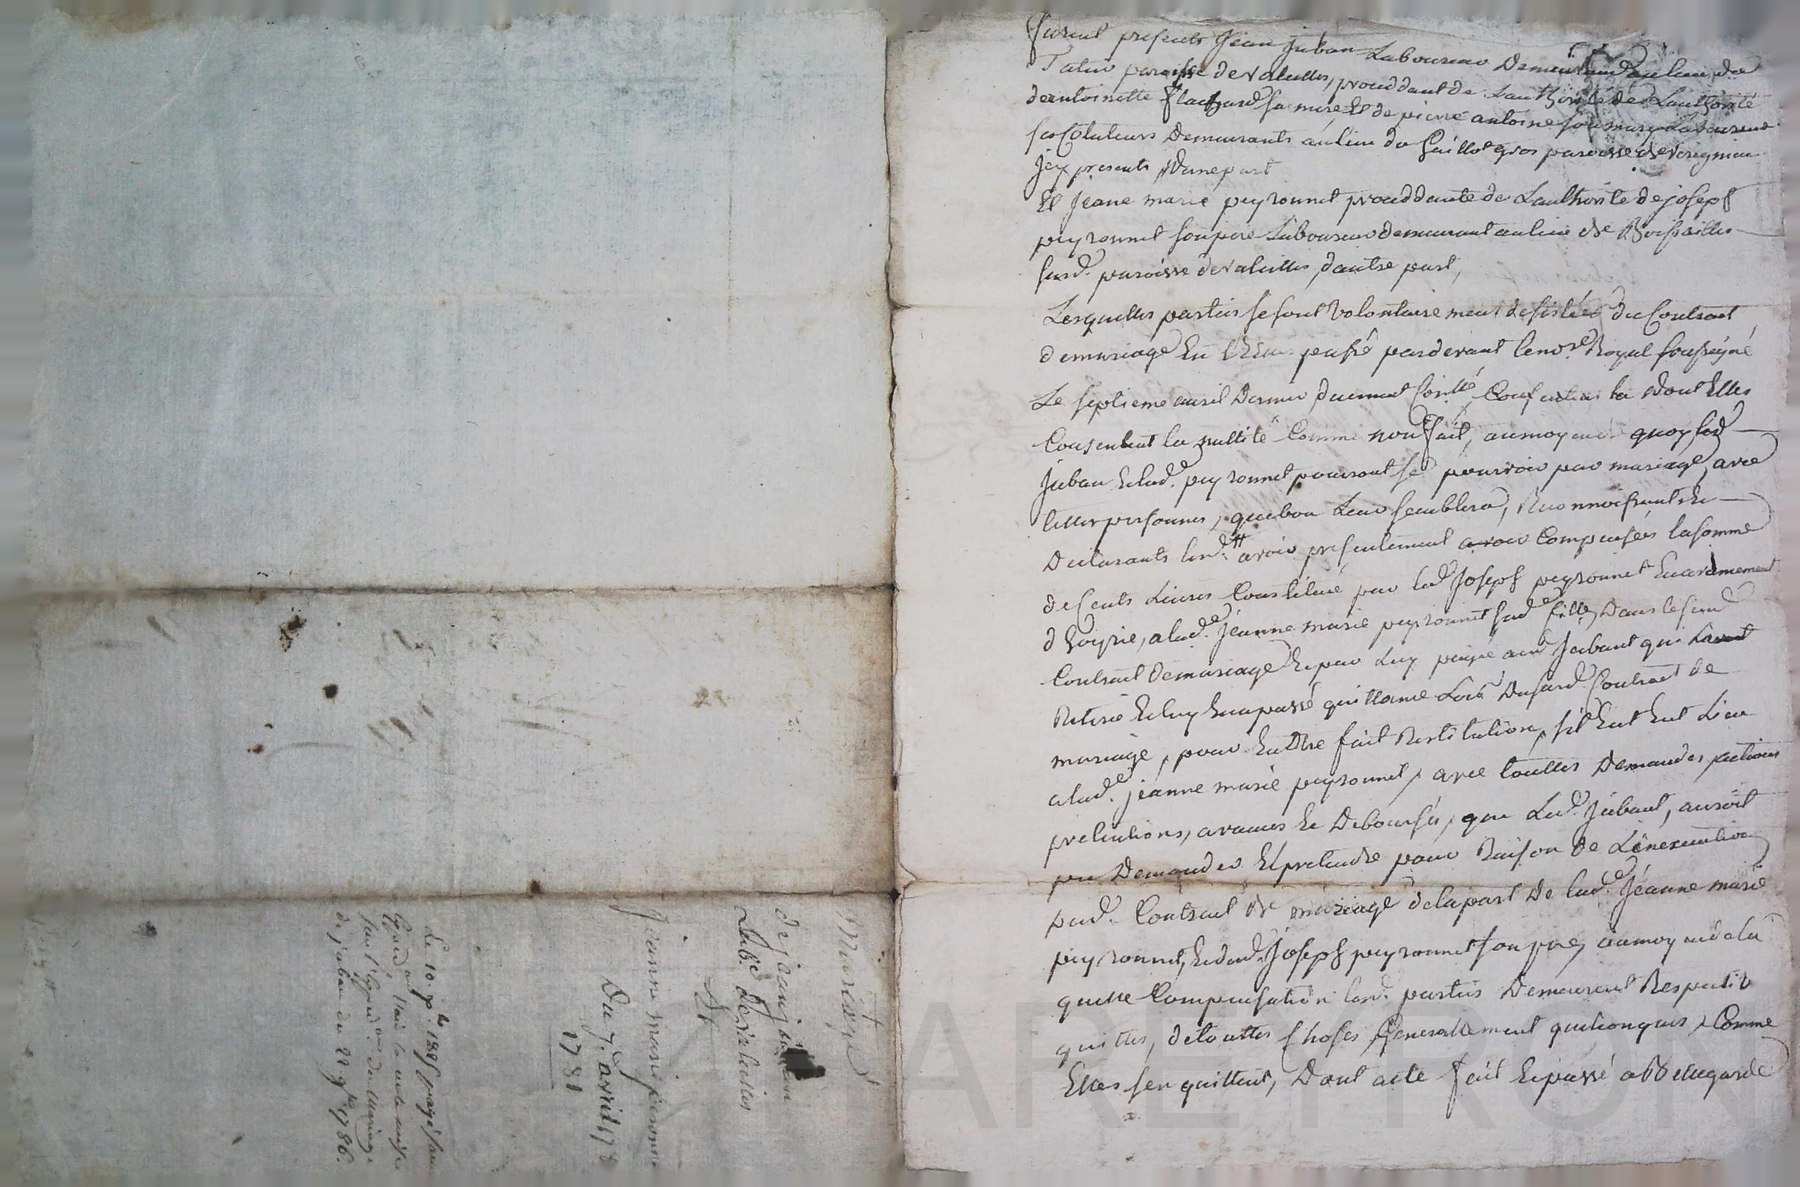 furent presents Jean juban Laboureur Demeurant au lieu de
paroisse de valeilles, proceddant de Lauthorité de Lauthorité
de antoinette flachard sa mere Et de pierre antoine Laboureur
ses Cotuteurs Demeurants au lieu de paroisse de
jcy presents d'une part
Et Jeane marie peyronnet proceddante de Lauthorité de joseph
peyronnet son pere Laboureur demeurant au lieu de Boissailles
susd. paroisse de valeilles, d'autre part,
Lesquelles parties se sont volontairement desistées du Contract
de mariage En passé pardevant le no.re Royal soussigné
Le septieme avril dernier duement Conllé, la dont Elles
Consentent la nullité Comme non fait, au moyen de quoy led.
juban Et lad.e peyronnet pourront se pourvoir par mariage, avec
telles personnes, que bon Leur semblera, Reconnoissants Et
Declarants lesd. avoir presentement avoir Compensées la somme
de Cents Livres Constitué par led. Joseph peyronnet En avancement
d'hoyrie, a lad.e jeanne marie peyronnet sad.e fille, Dans le susd.
Contract de mariage Et par Luy payée aud. Jubant qui
Retiré Et luy En a passé quittance Lors Du susd. Contract de
mariage, pour En Etre fait Restitution, s'il En Eut Lieu
a lad.e jeanne marie peyronnet, avec touttes Demandes, actions
pretentions, avances Et Deboursés, que Led. Jubant, auroit
pu Demander Et pretendre pour Raison de L'inexecution
dud. Contract de mariage de la part De lad.e Jeanne marie
peyronnet, Et dud. Joseph peyronnet son pere, au moyen de la
quelle Compensation lesd. parties Demeurent Respectiv
quittes, de touttes Choses Generallement quelconques, Comme
Elles s'en quittent, Dont acte fait Et passé a Bellegarde
Mariage
de jean juban
Lab.r de valeilles
Et
Jeanne marie peronne
Du 7. avril 17
1781
Le 10 1787 payé
de juban du 22 9bre 1786.
CAREYRON